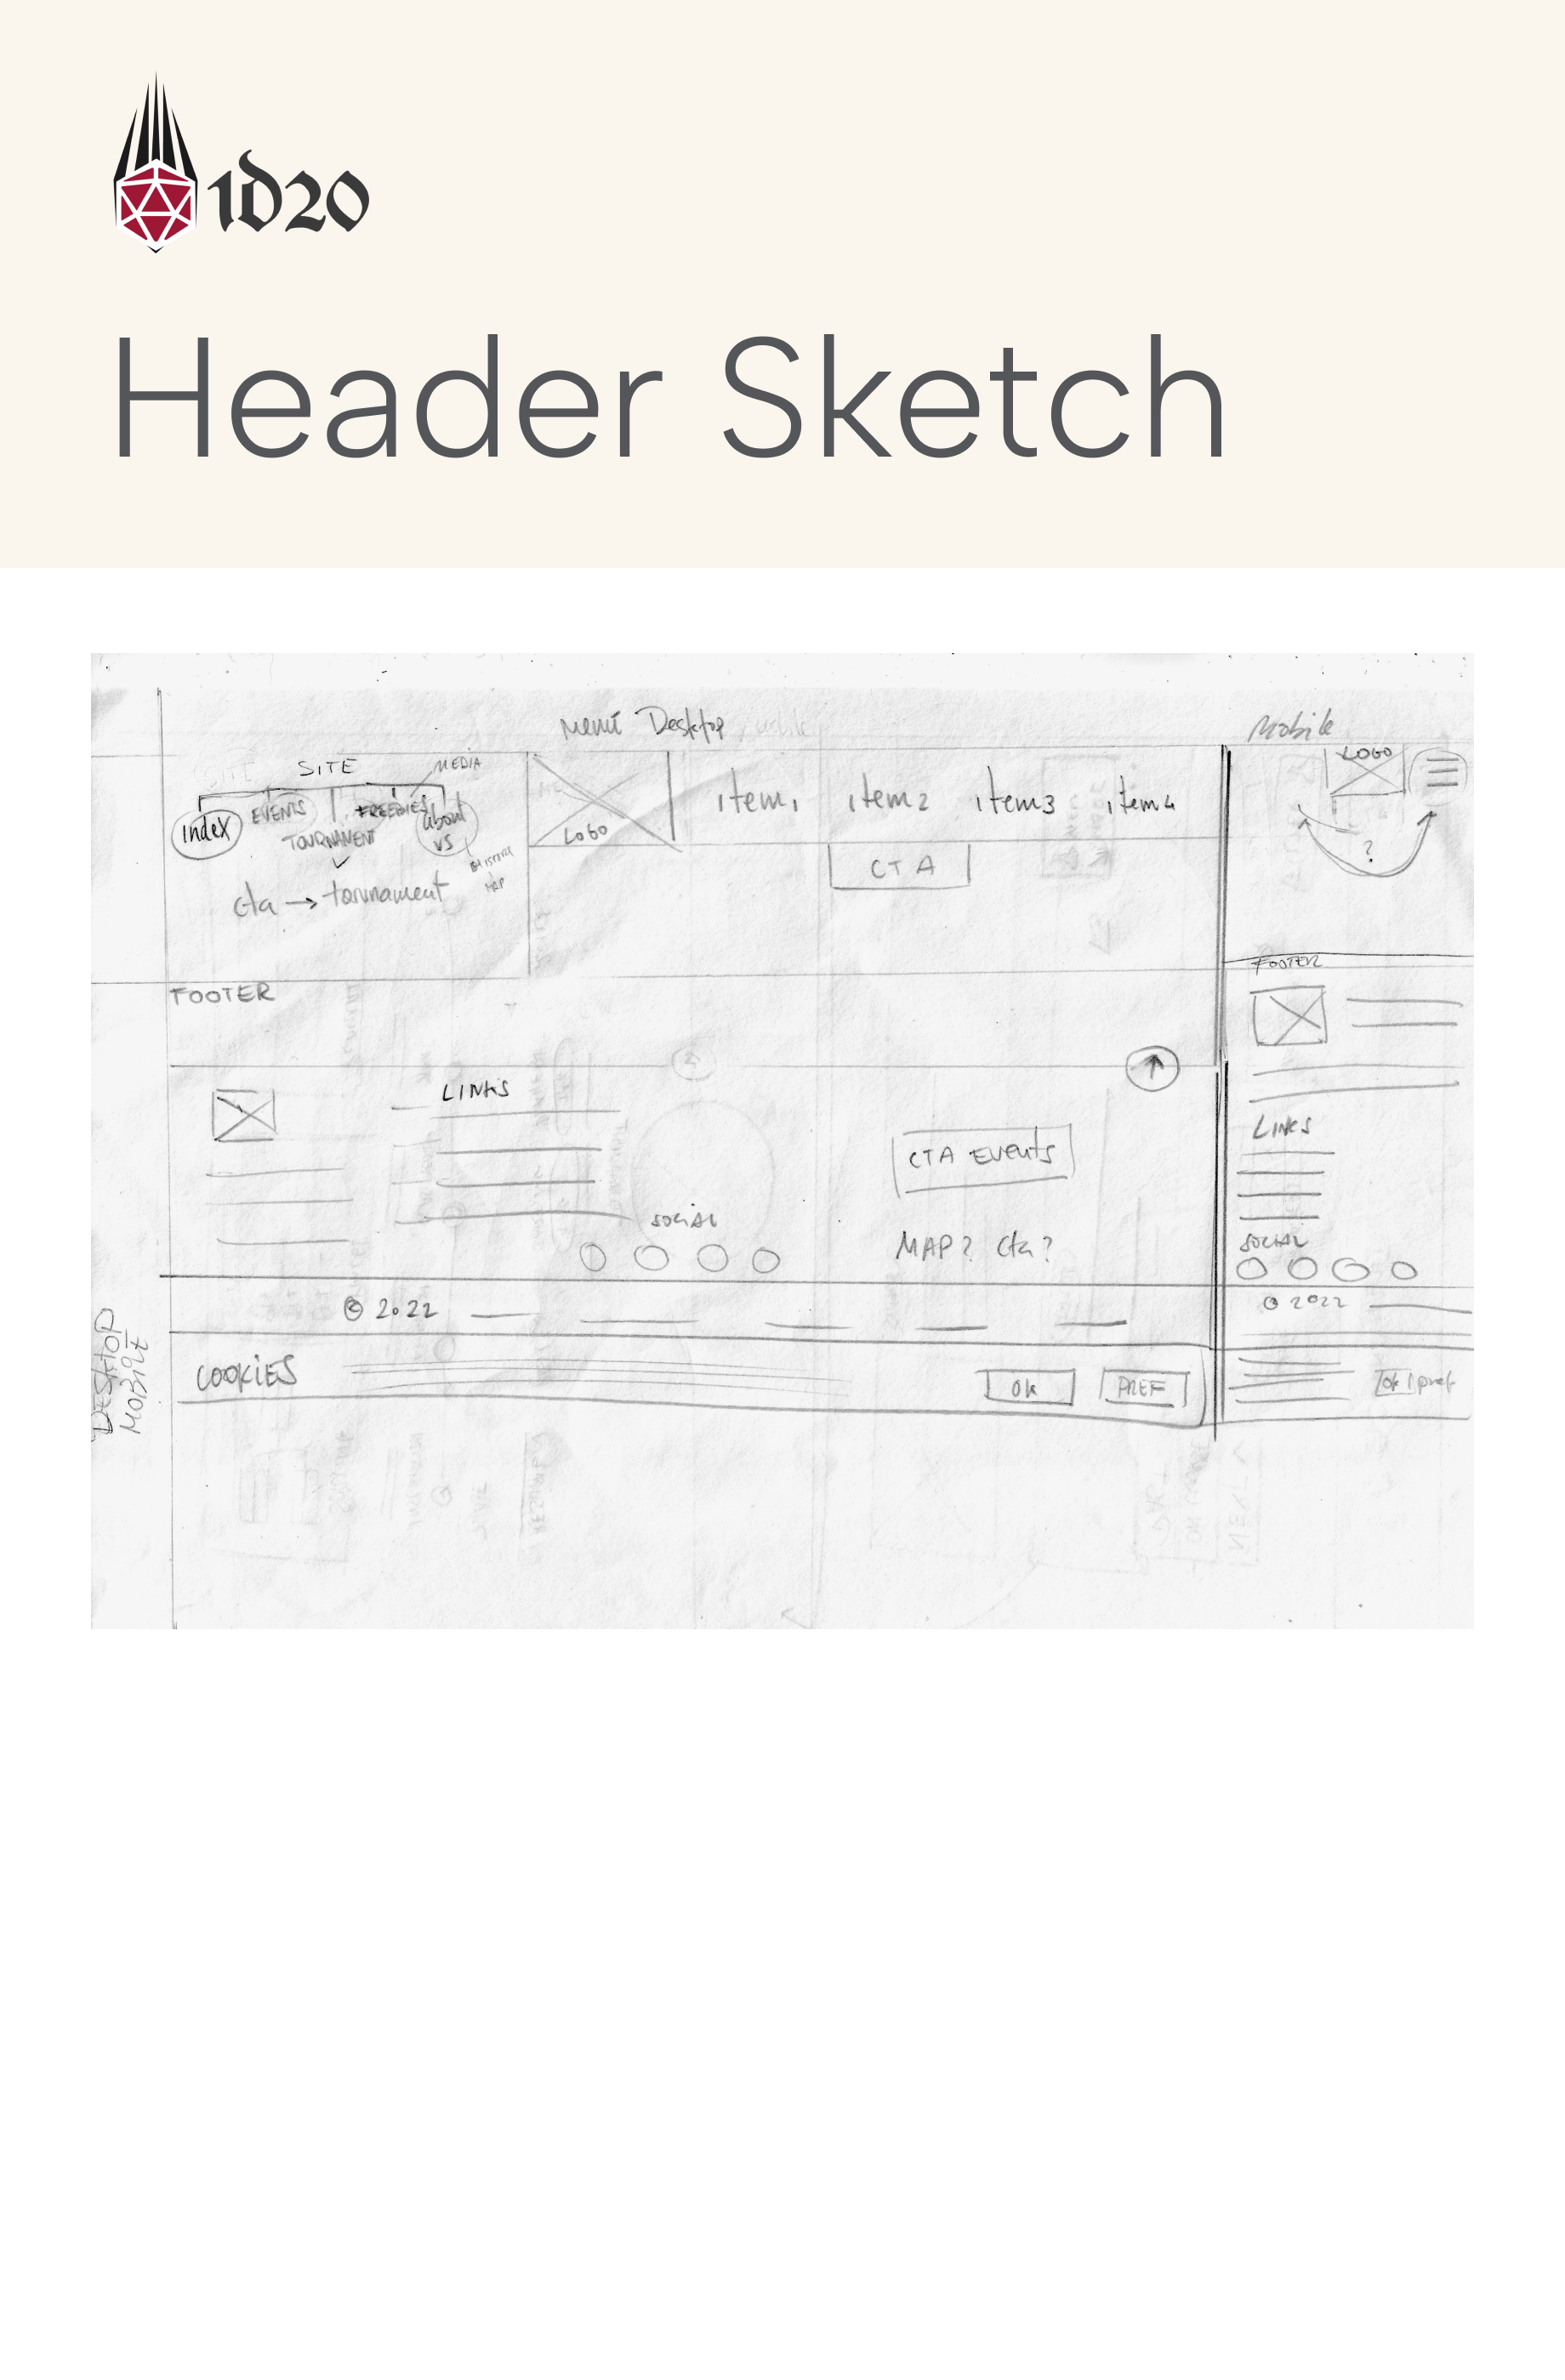 1D20
Header Sketch
Menú Desktop
Mobile
SITE
MEDIA
index
EVENTS
FREEBIES
about
us
TOURNAMENT
cta → tournament
MAP
LOGO
item1
item2
item3
item4
CTA
LOGO
?
FOOTER
LINKS
SOCIAL
CTA Events
MAP? cta?
© 2022
COOKIES
OK
PREF
FOOTER
LINKS
SOCIAL
© 2022
ok | pref
DESKTOP
MOBILE